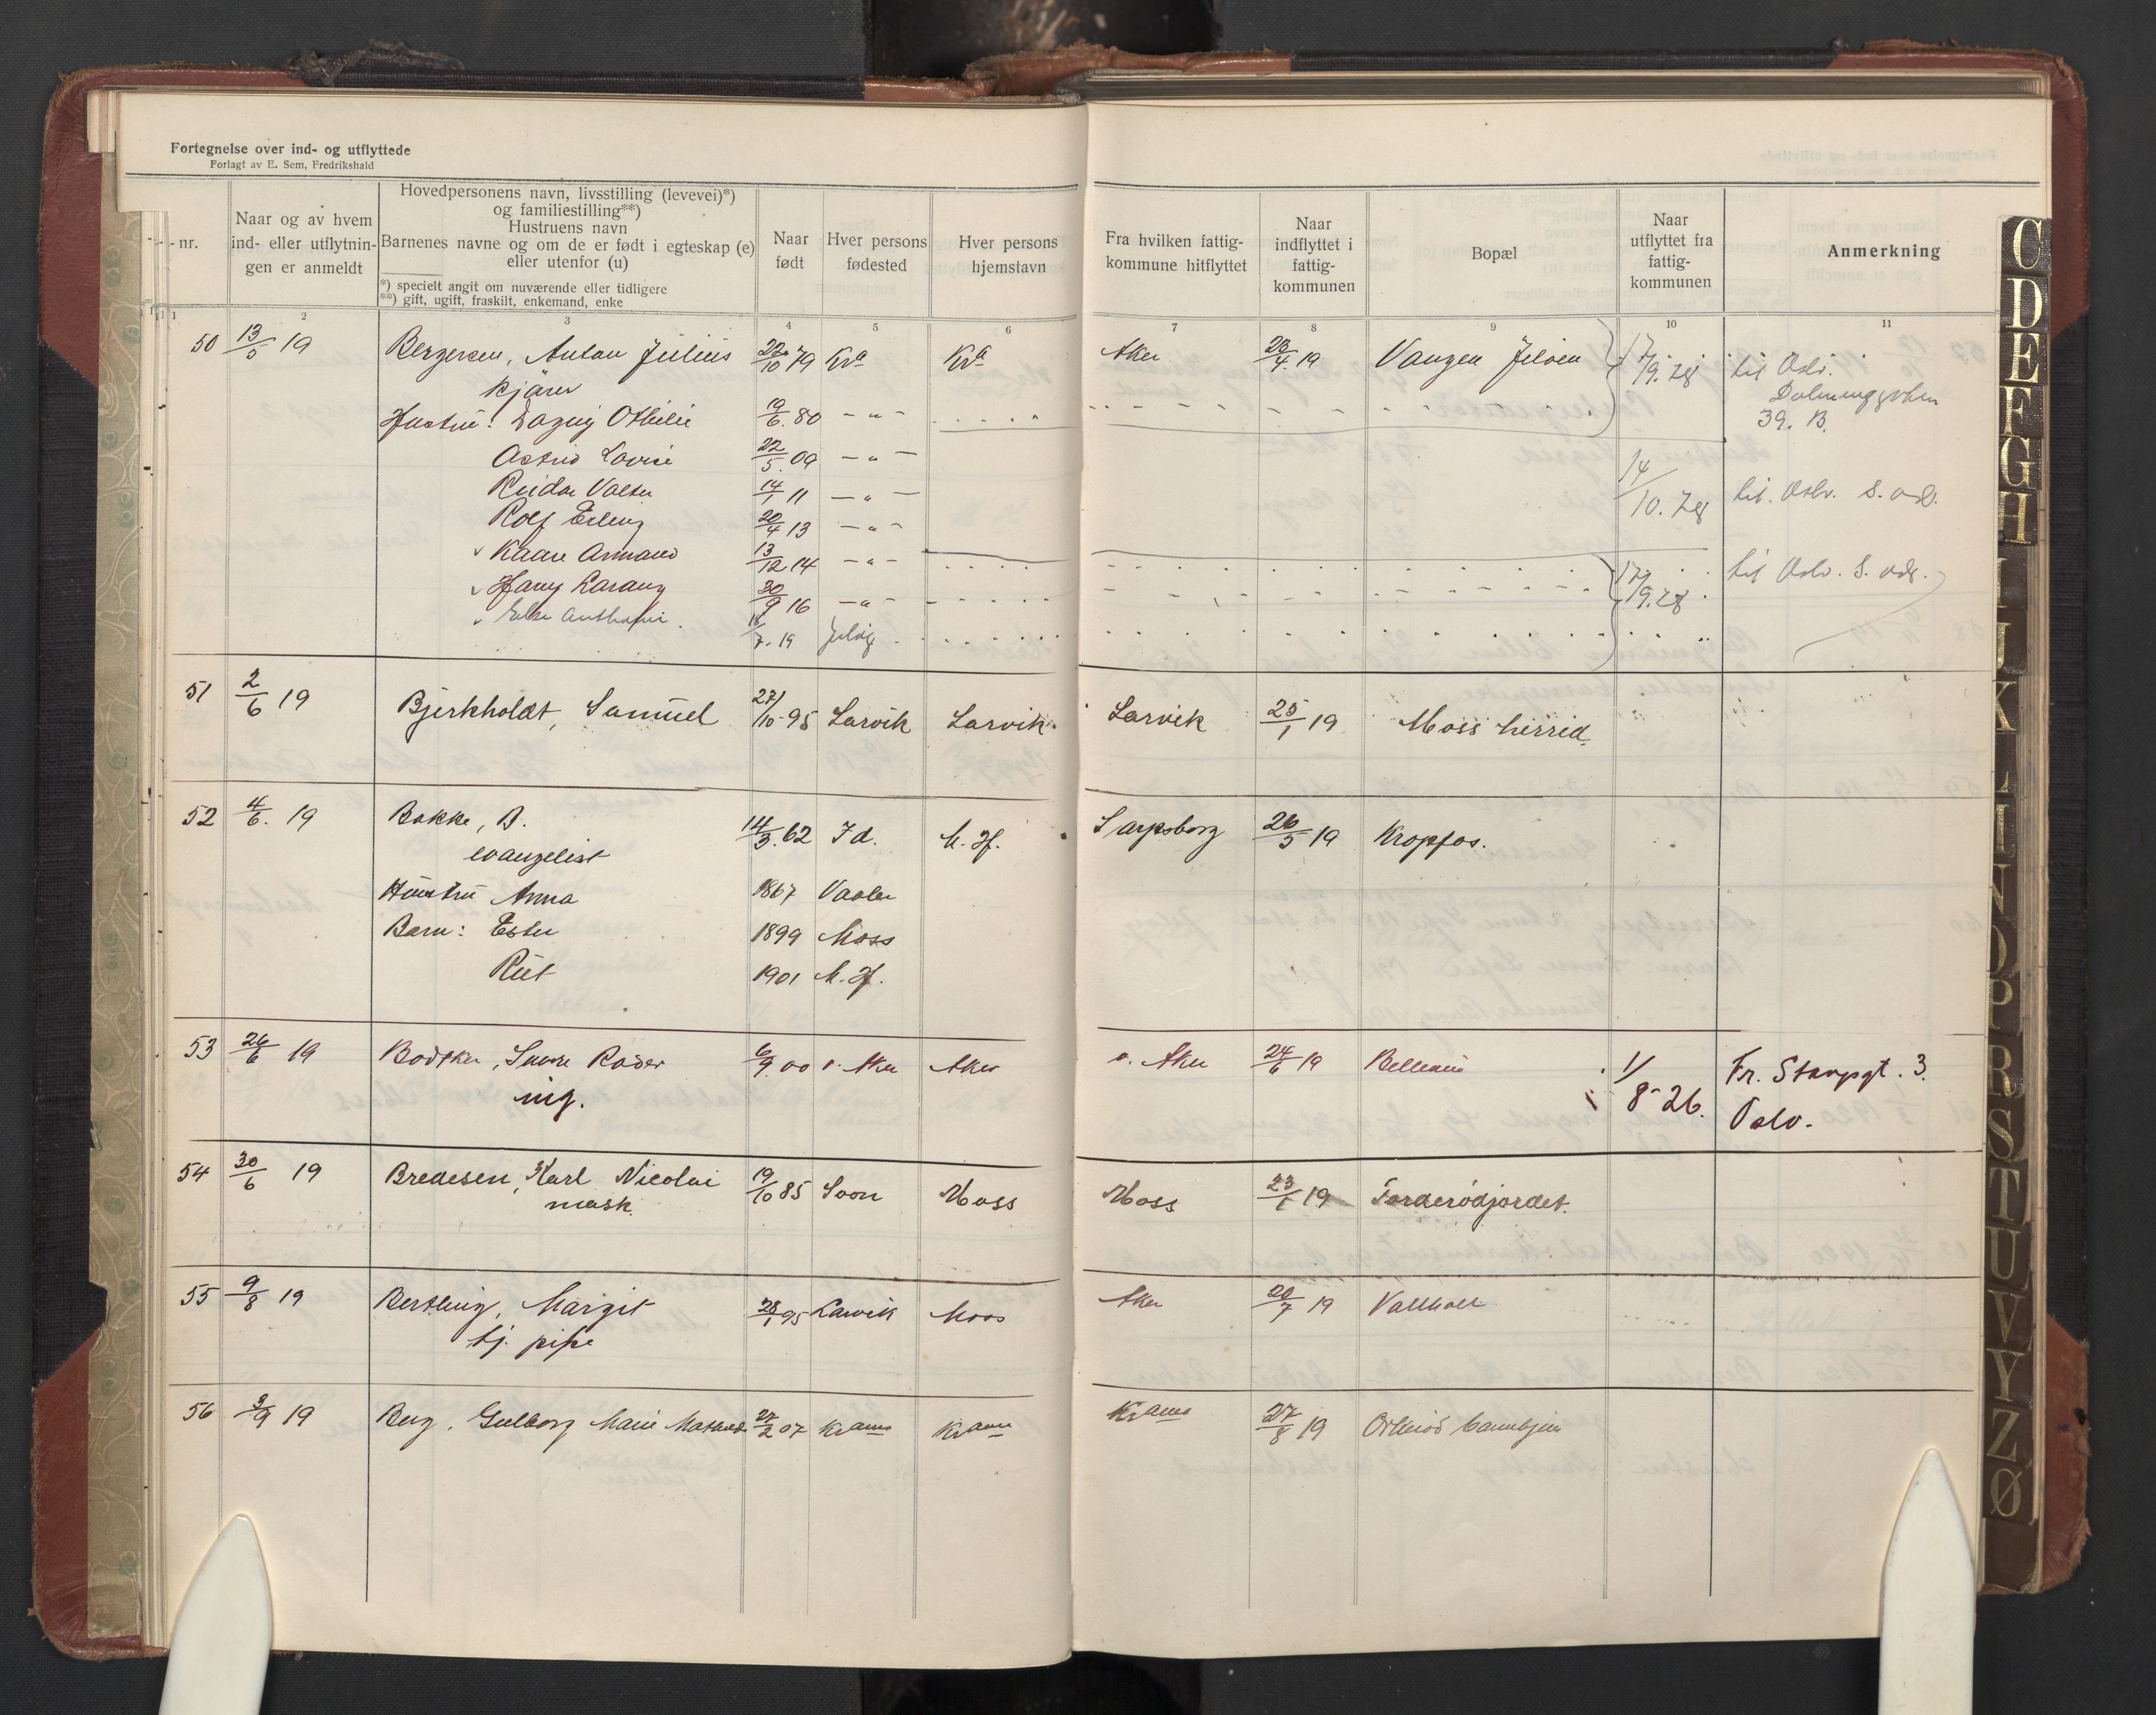 Fortegnelse over ind- og utflyttede
Forlagt av E. Sem, Fredrikshald
nr.
Naar og av hvem
ind- eller utflytnin-
gen er anmeldt
Hovedpersonens navn, livsstilling (levevei)*)
og familiestilling**)
Hustruens navn
Barnenes navne og om de er født i egteskap (e)
eller utenfor (u)
*) specielt angit om nuværende eller tidligere
**) gift, ugift, fraskilt, enkemand, enke
Naar
født
Hver persons
fødested
Hver persons
hjemstavn
Fra hvilken fattig-
kommune hitflyttet
Naar
indflyttet i
fattig-
kommunen
Bopæl
Naar
utflyttet fra
fattig-
kommunen
Anmerkning
1 2 3 4 5 6 7 8 9 10 11
50 13/5 19 Bergersen, Anton Julius 22/10 79 Kra Kra Aker 23/4 19 Vangen Jeløen 17/9. 28 til Oslo.
kjører
39. B.
Hustru: Dagny Othilie 19/6. 80 - " -
Astrid Lovise 22/5. 09 - " -
Reidar Valter 14/1 11 - " - 14/10. 28 til Oslo. S. ads.
Rolf Erling 20/4 13 - " -
Kaare Armand 13/12 14 - " - 17/9. 28 til Oslo. S. ads.
Harry 30/9 16 - " -
Else 7. 19 Jeløy
51 2/6 19 Bjerkholdt, Samuel 27/10 - 95 Larvik Larvik Larvik 25/1 19 Moss herred
52 4/6. 19 Bakke, B. 14/3. 62 Id. M. Hf. Sarpsborg 26/5 19 Kropfos.
evangelist
Hustru Anna 1867 Vaaler
Barn: Ester 1899 Moss
Rut 1901 M. Hf.
53 26/6 19 Bødtker, 6/9 00 v. Aker Aker v. Aker 24/6 19 1/8 - 26. Fr. Stangsgt. 3.
ing.
Oslo.
54 30/6 19 Bredesen, Karl Nicolai 19/10 85 Soon Moss Moss 23/1 19 Torderödjordet.
mask.
55 9/8 19 Bertling, Margit 28/1 95 Larvik Moss Aker 20/7 19 Valhall
tj. pike
56 3/9 19 Berg, Gulborg Marie 27/2 07 Krania Krania Krania 27/8 19 Orkerød barnehjem
C
D
E
F
G
H
I
J
K
L
M
N
O
P
R
S
T
U
V
Y
Z
Ø